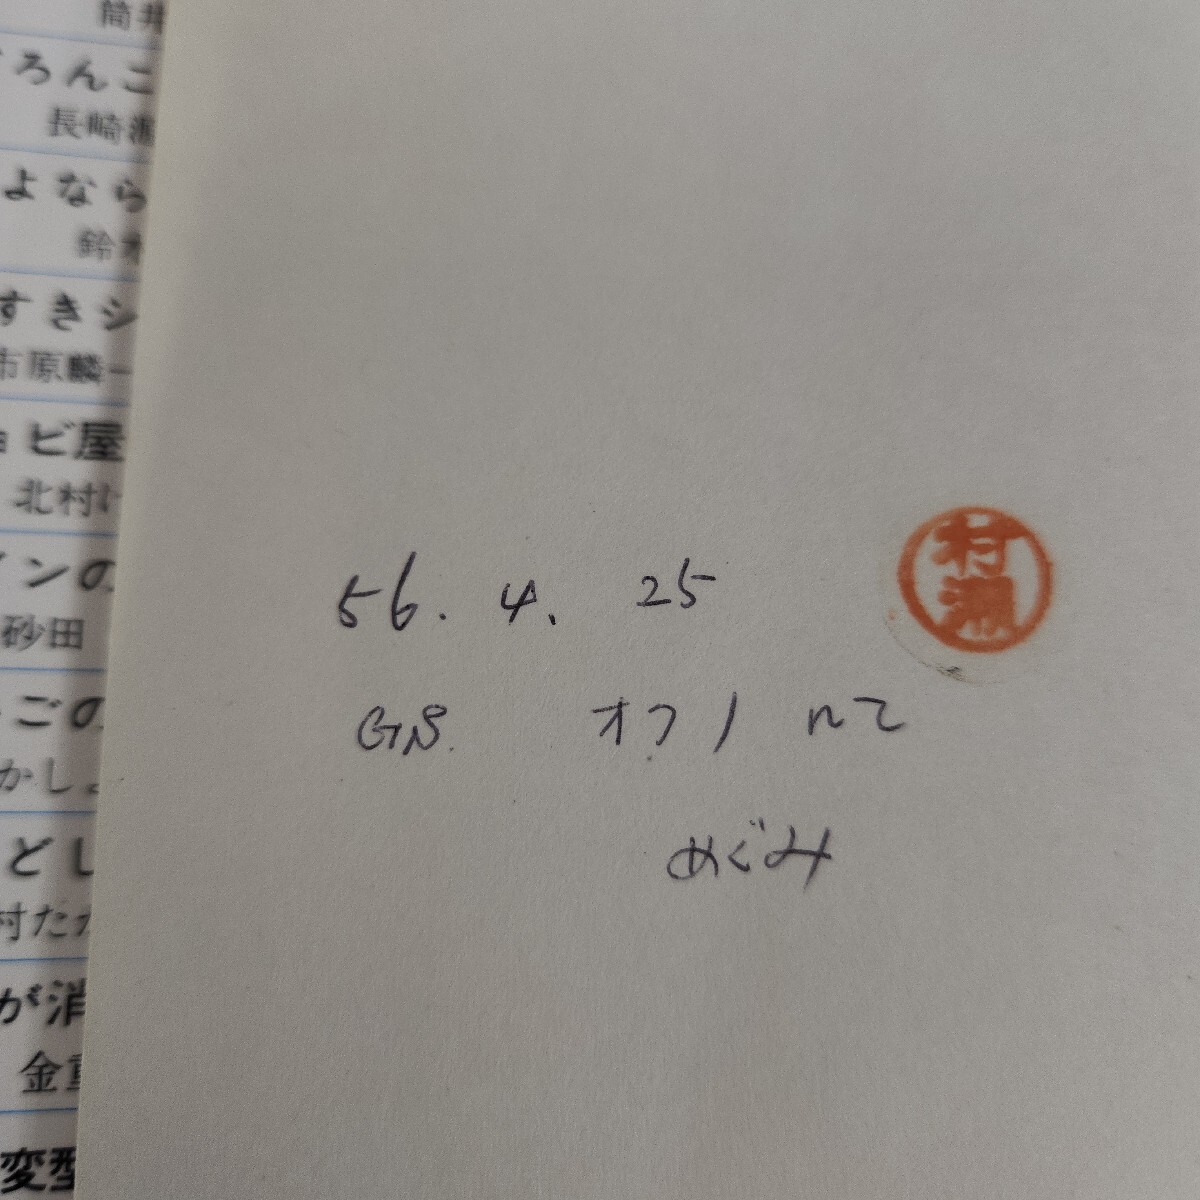 筒井
ろんこ
長崎源
よなら
鈴木
すきシ
市原麟一
ョビ屋
北村け
インの
砂田
ごの
かしょ
どし
村たか
が消
金重
変型
村瀬
56. 4. 25
G.S. オフノ にて
めぐみ